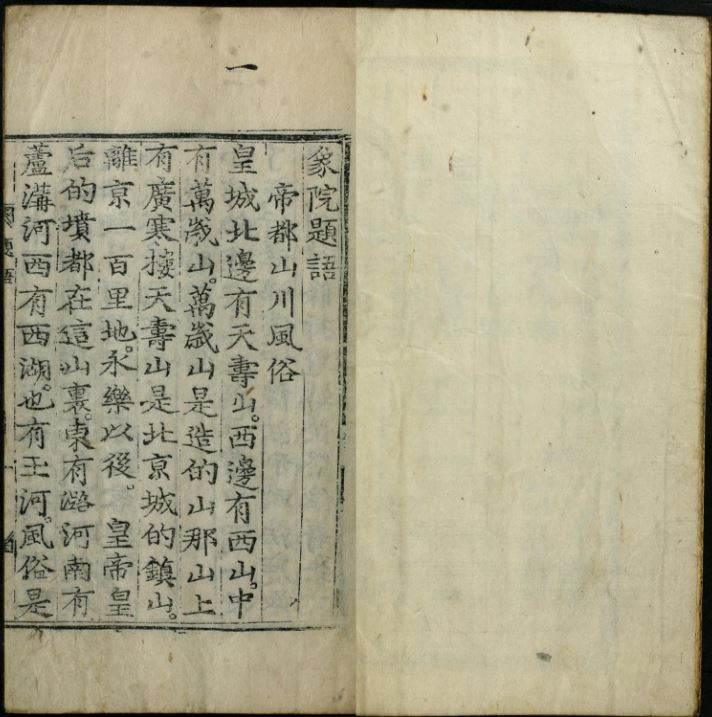 一
象院題語
帝都山川風俗
皇城北邊有天壽山。西邊有西山。中
有萬歲山。萬歲山是造的山那山上
有廣寒接天壽山是北京城的鎮山。
離京一百里地。永樂以後。皇帝皇
后的墳都在這山裏。東有潞河南有
蘆溝河西有西湖。也有玉河。風俗是
題語
一